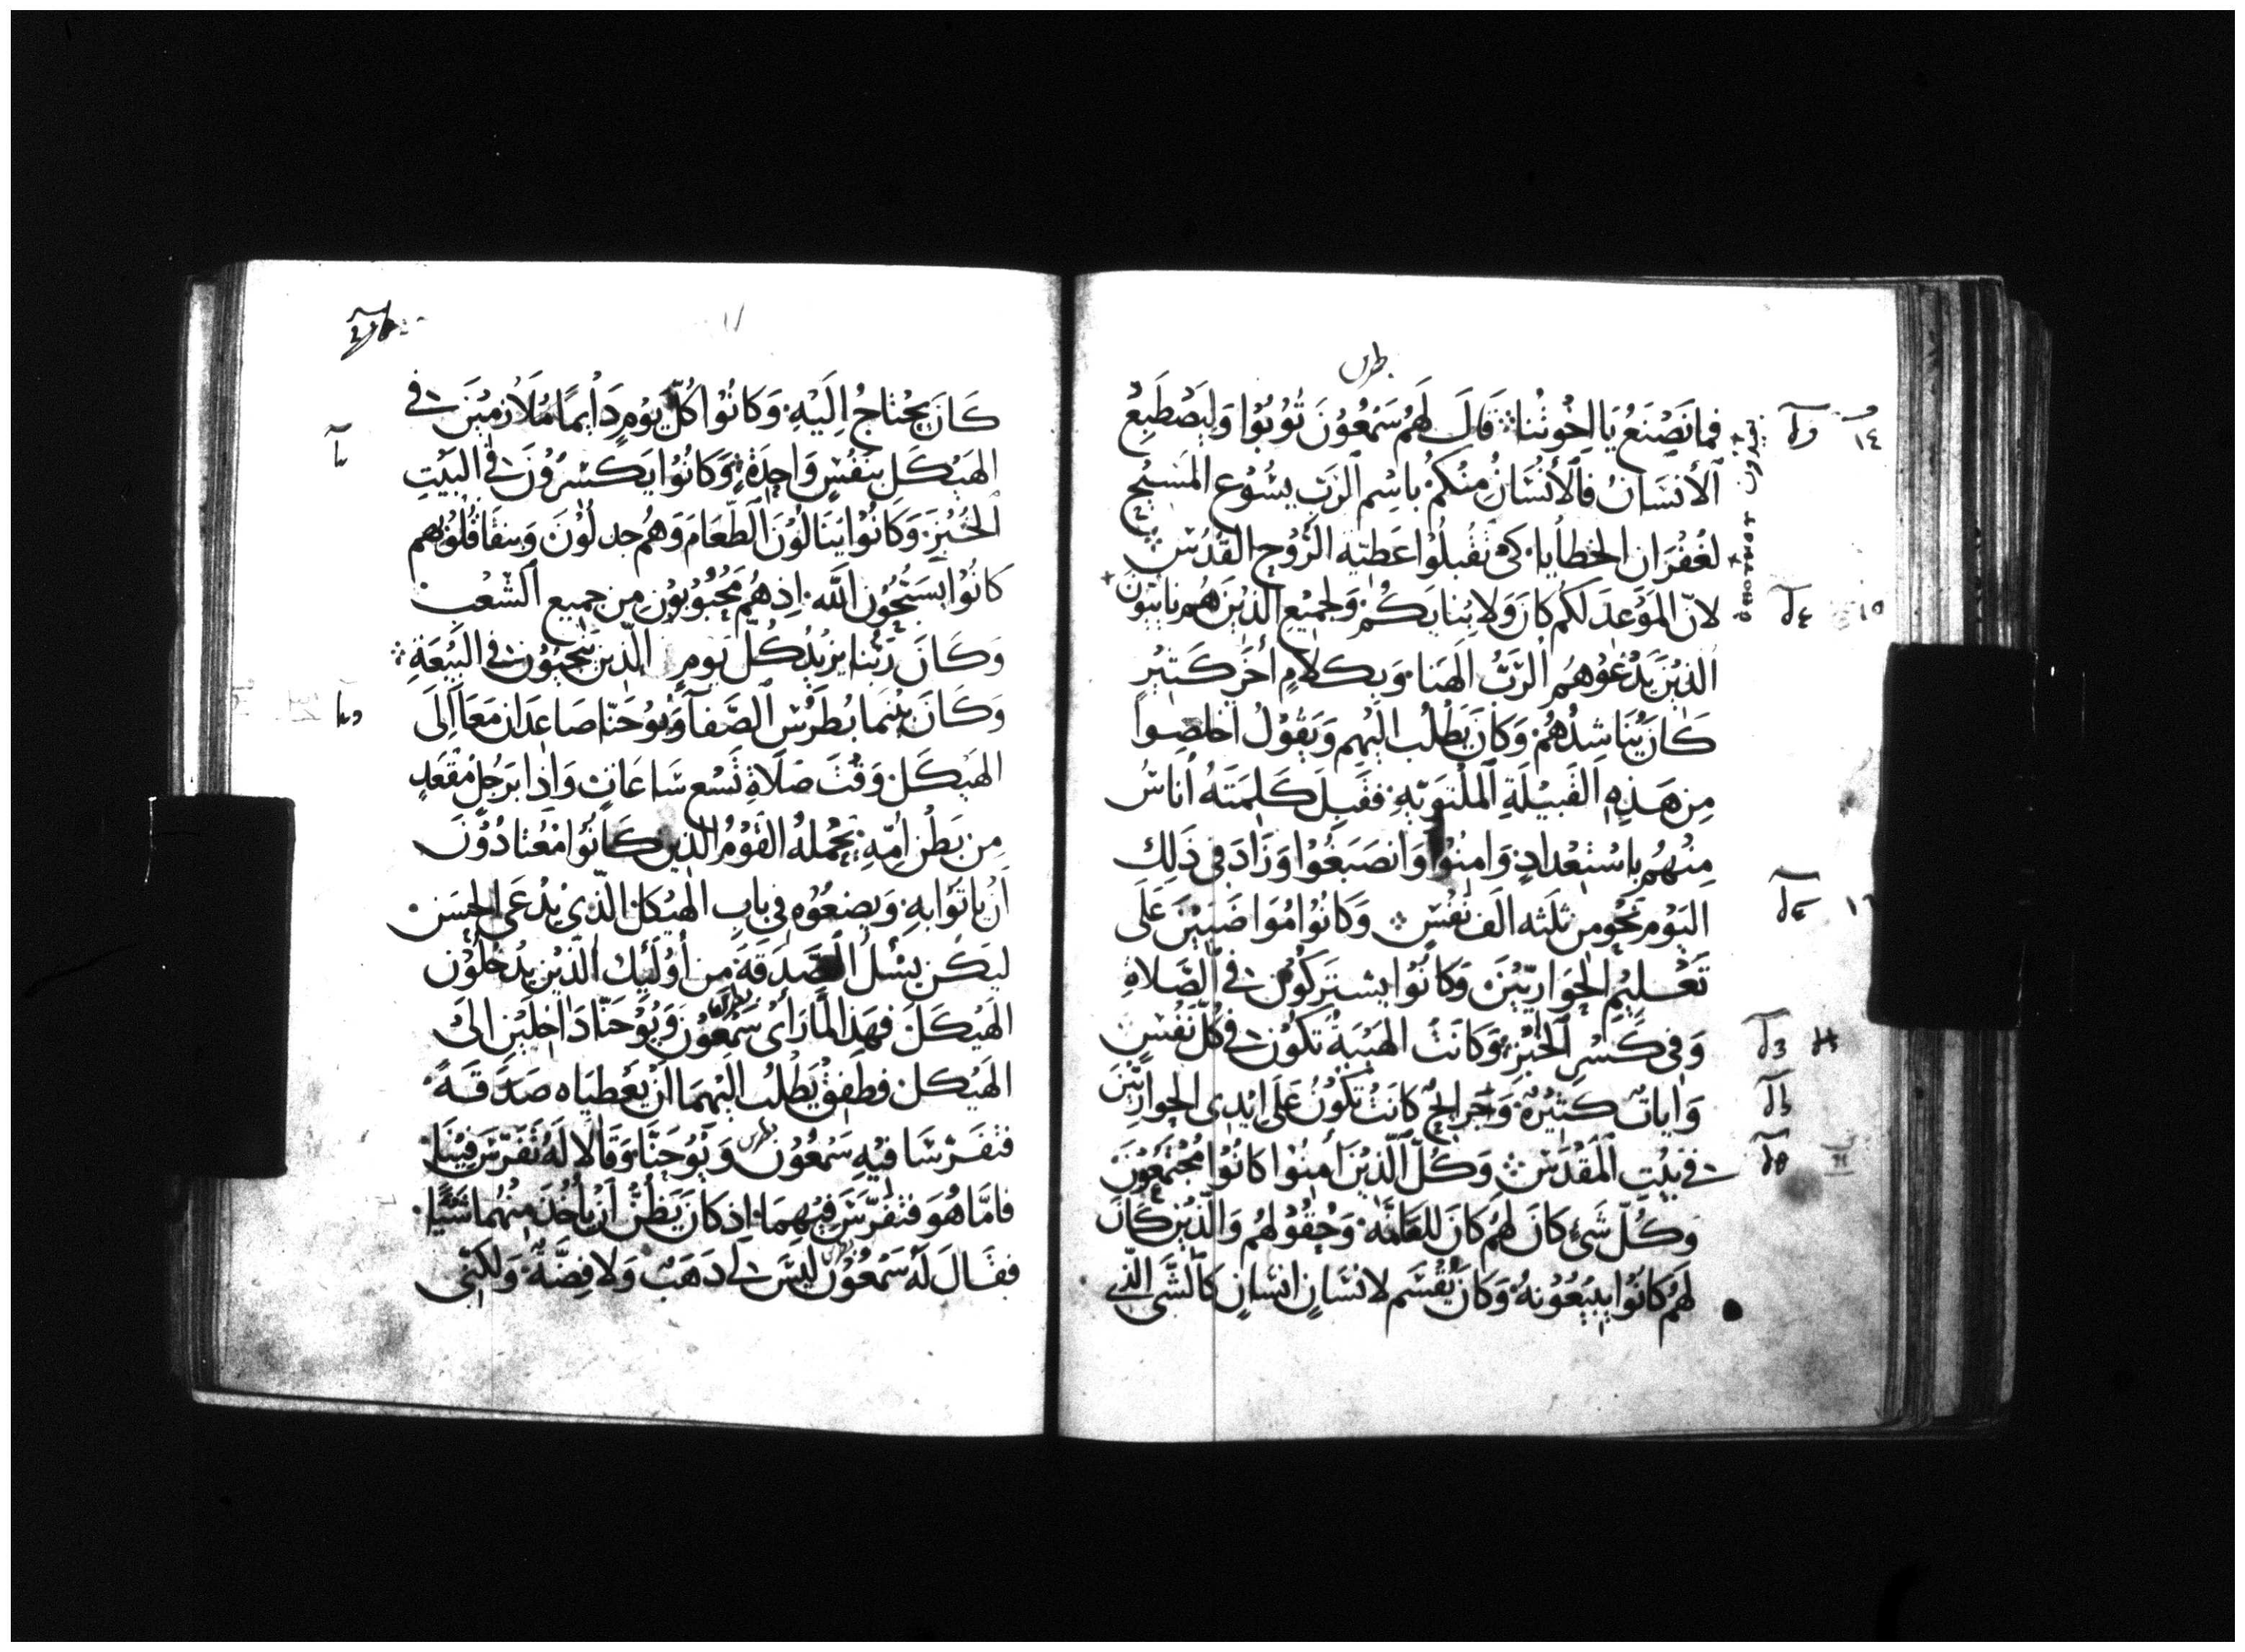 بطرس
فما نَصْنَعُ يَا اِخْوتُنا ܀ قَالَ لَهُم سَمْعُوْنَ تُوْبُوْا وَليَصْطَبِغُ
اَلأنسَانُ فَالأنْسَانُ مِنْكُمْ بِاسْمِ اَلرَبِّ يسُوْع المَسِيْحِ
لغُفْرَانِ الخَطأيا. كَىْ تَقْبلُوْا عَطيّه الرُوْح القُدُسْ
لانّ المَوْعِدَ لَكُم كانَ وَلابْنايَكُمْ وَلجَمِيْعِ الَّذيْنَ هُم نايِئون
الَّذيْنَ يَدْعُوْهُمْ الرَّبُّ اِلهَنا. وَبكَلامٍ أُخَرَ كَثيْرٍ
كَانَ يُنَاشِدُهُمْ. وَكَانَ يَطْلُب الَيْهم وَيَقُوْلُ اخلصُوا
مِن هَذِهِ القَبيْلَةِ المُلْتَويّهِ. فقَبلَ كَلِمَتَهُ اُناسُ
مِنْهُم بِاسْتعْدادٍ. وَامنُوْا وَانصَبَغُوْا وَزَادَ في ذَلِك
اليَوْم نَحْو من ثلثه الَف نَفْسٍ ܀ وَكَانُوْا مُوَاضَبيْنَ عَلَى
تَعْليْمِ الحَوَاريّيْنَ. وَكانُوْا يشتركُوْن في الصَّلاةِ
وَفي كَسْرِ الخُبْزِ. وَكَانَت الهَيْبَةُ تَكُوْن في كُلّ نَفْسٍ
وَاياتٌ كَثيْرهٌ. وَجَرَايحٌ كانَتْ تكُوْنُ عَلَى ايْدِى الحوارييْنَ
في بَيْت المَقْدَسْ ܀ وَكُلّ الَّذيْنَ أمنُوْا كانُوْا مُجْتَمعُوْنَ
وَكُلّ شَىْءٍ كَانَ لَهُم كَانَ للعَامّه. وَحُقُوْلهُم وَالَّذيْن كَانَ
لَهُم كانُوْا يَبيْعُوْنهُ. وَكَانَ يُقْسَم لانْسَانٍ انْسَانٍ كالشَّى الَّذي
كَانَ يحْتاجُ اِلَيْهِ. وَكانُوْا كُلّ يَوْمٍ دَايمًا مُلَازمِيْنَ في
الهَيْكَل بنَفْسٍ وَاحِدَةٍ. وَكَانُوْا يَكسْرُوْنَ في البَيْتِ
الخُبْزَ. وَكَانُوْا يَنَالُوْنَ الطّعَامَ وَهُم جدلُوْنَ وَبنقَا قُلُوْبهم
كانُوْا يسَبّحُوْن اللَّه. اِذ هُم مَحْبُوْبُوْن من جميع الشّعْبِ
وَكَانَ رَبّنا يزيْدُ كُلّ يَومٍ الّذين يَحْيَوْن في البيْعَةِ ܀
وَكَانَ بيْنمَا بُطْرُس الصَّفا وَيُوْحَنّا صَاعدَان مَعَا اِلَى
الهَيْكَل. وَقْتَ صَلَاةِ تِسْع سَاعَاتٍ وَاِذا برَجُلٍ مُقْعَدٍ
مِن بَطْن اُمّهِ. يَحْملهُ القَوْمُ الَّذيْن كَانُوْا مُعْتَادُوْنَ
اَنْ يأتُوْا بهِ. وَيضعُوْهِ في بابِ الهَيْكل الّذى يُدْعَى الحسَن.
ليَكُن يسْئل الصَّدَقَةَ من أُوْلَئيك الّذيْن يدْخلُوْن
الهَيْكَلَ. فهَذا لمَّا رَأى سَمْعُوْن وَيُوْحَنّا دَاخِلَيْن الى
الهَيْكل. فطَفِقْ يَطْلُب الَيْهمَا اَنْ يعْطيَاه صَدَقَةً.
فتَفَرّسَا فيْهِ سَمْعُوْن وَيُوْحَنَّا. وَقَالا لَهُ تَفَرّسَ فيْنَا.
فامَّا هُوَ فتفَرّسَ فيْهمَا. اِذ كانَ يَظُنّ اَنْ يأخُذَ منْهُما شَيْئًا.
فقَال لَهُ سَمْعُوْن ليْسَ لي ذَهَبٌ وَلا فِضَّةٌ. وَلَكنّي